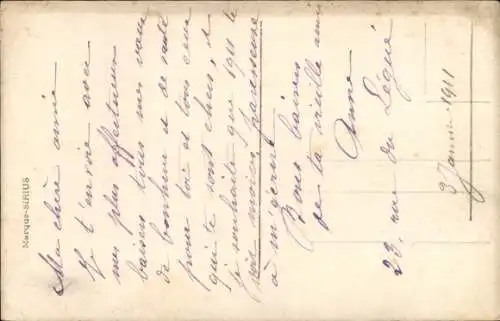 Ma chère amie
Je t'envoie avec
mes plus affectueux
baisers tous mes vœux
de bonheur et de santé
pour toi et tous ceux
qui te sont chers, et
je souhaite que 1911 te
voie moins paresseuse
à m'écrire
Bons baisers
de ta vieille amie
Anne
23, rue du Légué
3 Janvier 1911
Marque-SIRIUS